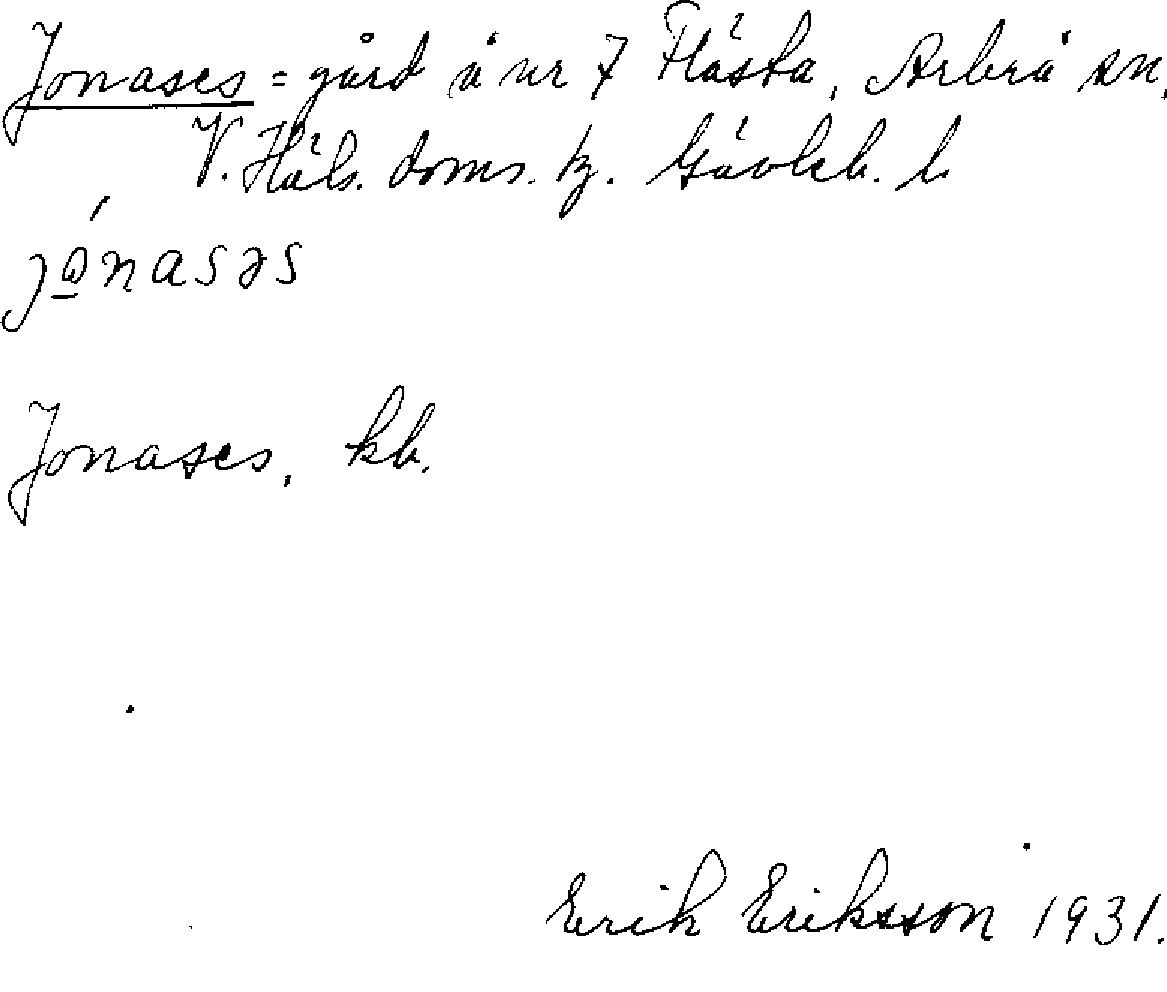 Jonases = gård å nr 7 Flästa, Arbrå sn,
V. Häls. doms. tg. Gävleb. l.
jo̲nasəs
Jonases, kb.
Erik Eriksson 1931.